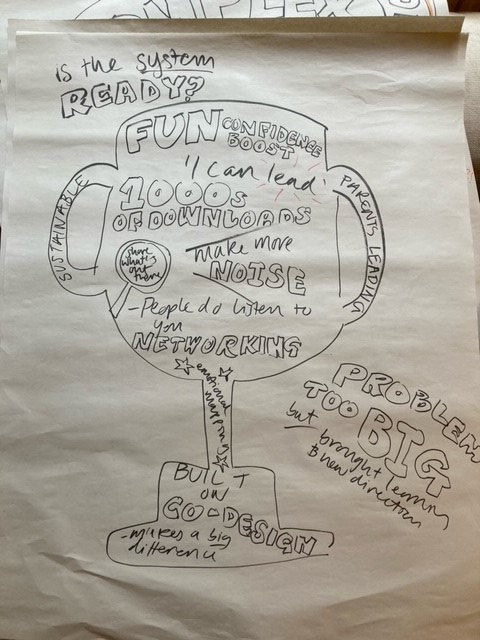 is the system
READY?
FUN CONFIDENCE
BOOST
'I can lead'
1000s
OF DOWNLOADS
SUSTAINABLE
PARENTS LEADING
share
what's
out
there
make more
NOISE
-People do listen to
you
NETWORKING
emotional
mapping
BUILT
ON
CO-DESIGN
-makes a big
difference
PROBLEM
TOO BIG
but brought learning
& new direction